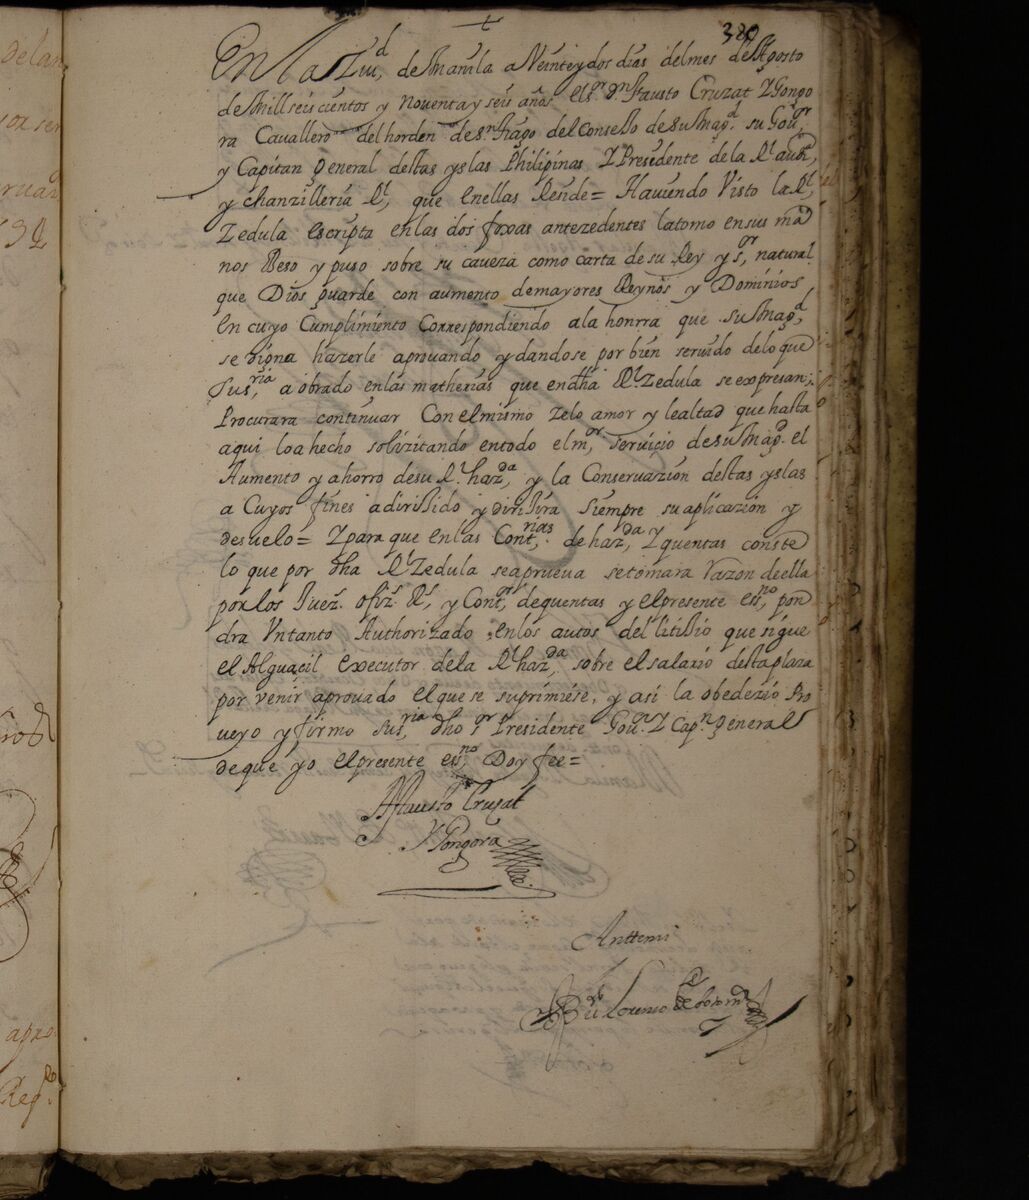 380
En la Ziu.d de Manila a Veinte y dos dias del mes de Agosto
de mill seis cientos y Noventa y seis años el s.or D.n Fausto Cruzat Y Gongo
ra Cavallero del horden de s.n tiago del Consejo de su Mag.d su Gou.or
y Capitan General destas yslas Philipinas Y Presidente de la R.l aud.a
y chanzilleria R.l que en ellas Reside= Hauiendo Visto la R.l
Zedula escripta en las dos foxas antezedentes la tomo en sus ma
nos Beso y puso sobre su caueza como carta de su Rey y s.or natural
que Dios guarde con aumento de mayores Reynos y Dominios
en cuyo Cumplimiento Correspondiendo a la honrra que su Mag.d
se digna hazerle aprouando y dandose por bien seruido de lo que
Sus.ria a obrado en las matherias que en dha R.l Zedula se expresan;
Procurara continuar Con el mismo zelo amor y lealtad que hasta
aqui lo a hecho solizitando en todo el m.or seruicio de su Mag.d el
Aumento y ahorro de su R.l haz.da y la Conseruazion destas yslas
a Cuyos fines a dirijido y dirijira siempre su aplicazion y
desuelo= Y para que en las Cont.rias de haz.da y Y quentas conste
lo que por dha R.l Zedula se aprueua se tomara razon de ella
por los Juez.s ofiz.s R.s y Cont.or de quentas y el presente ess.no pon
dra Vn tanto Authorizado en los autos del litijio que sigue
el Alguacil executor de la R.l haz.da sobre el salario desta plaza
por venir aprouado el que se suprimiese, y asi la obedezio Pro
ueyo y firmo sus.ria dho s.or Presidente Gou.or Y Cap.n General
de que yo el presente ess.no Doy fee=
D.n Fausto Cruzat
Y Gongora
Anttemi